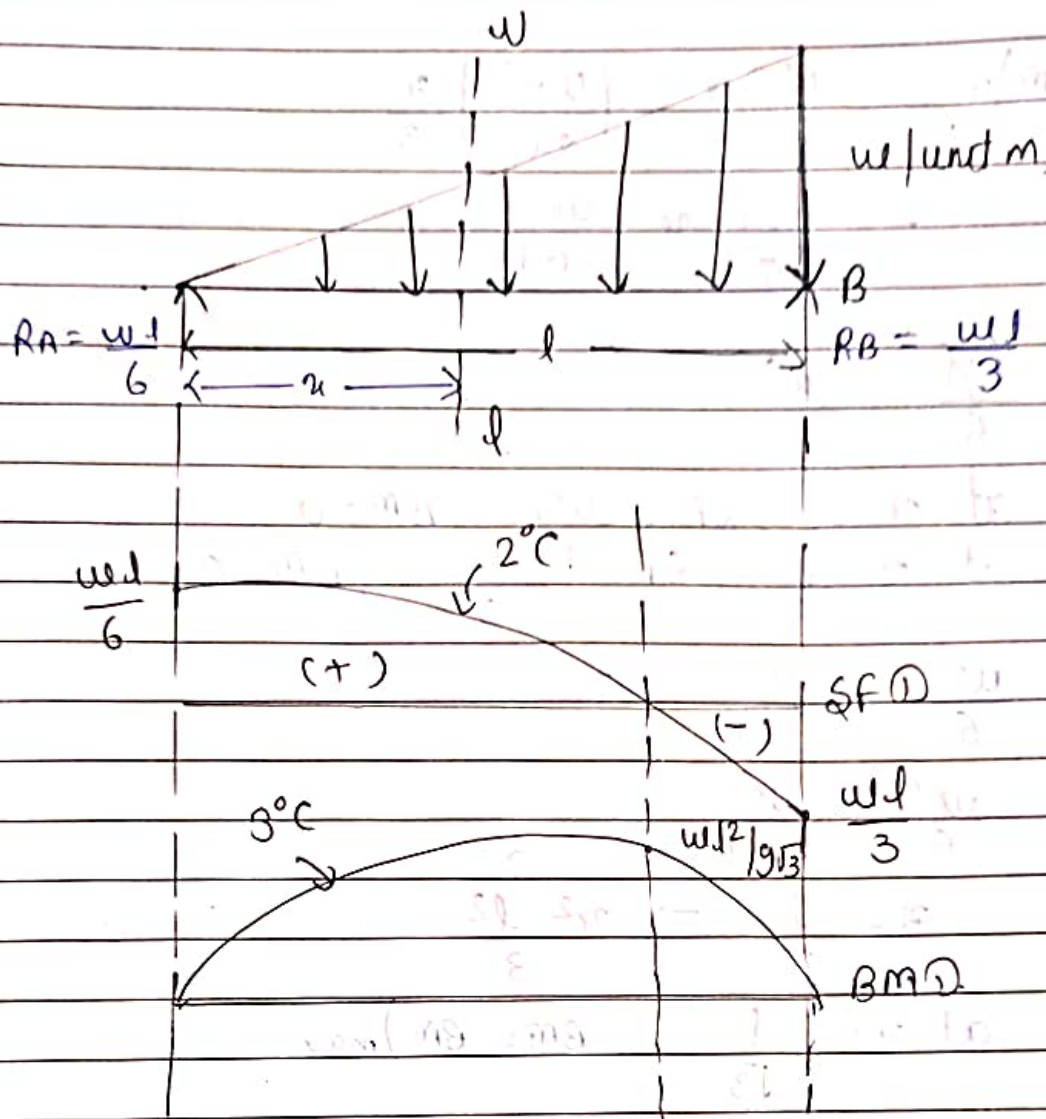 w
w/unit m
B
RA = wl/6
l
RB = wl/3
x
l
wl/6
2°C
(+)
SFD
(-)
wl/3
3°C
wl²/9√3
BMD